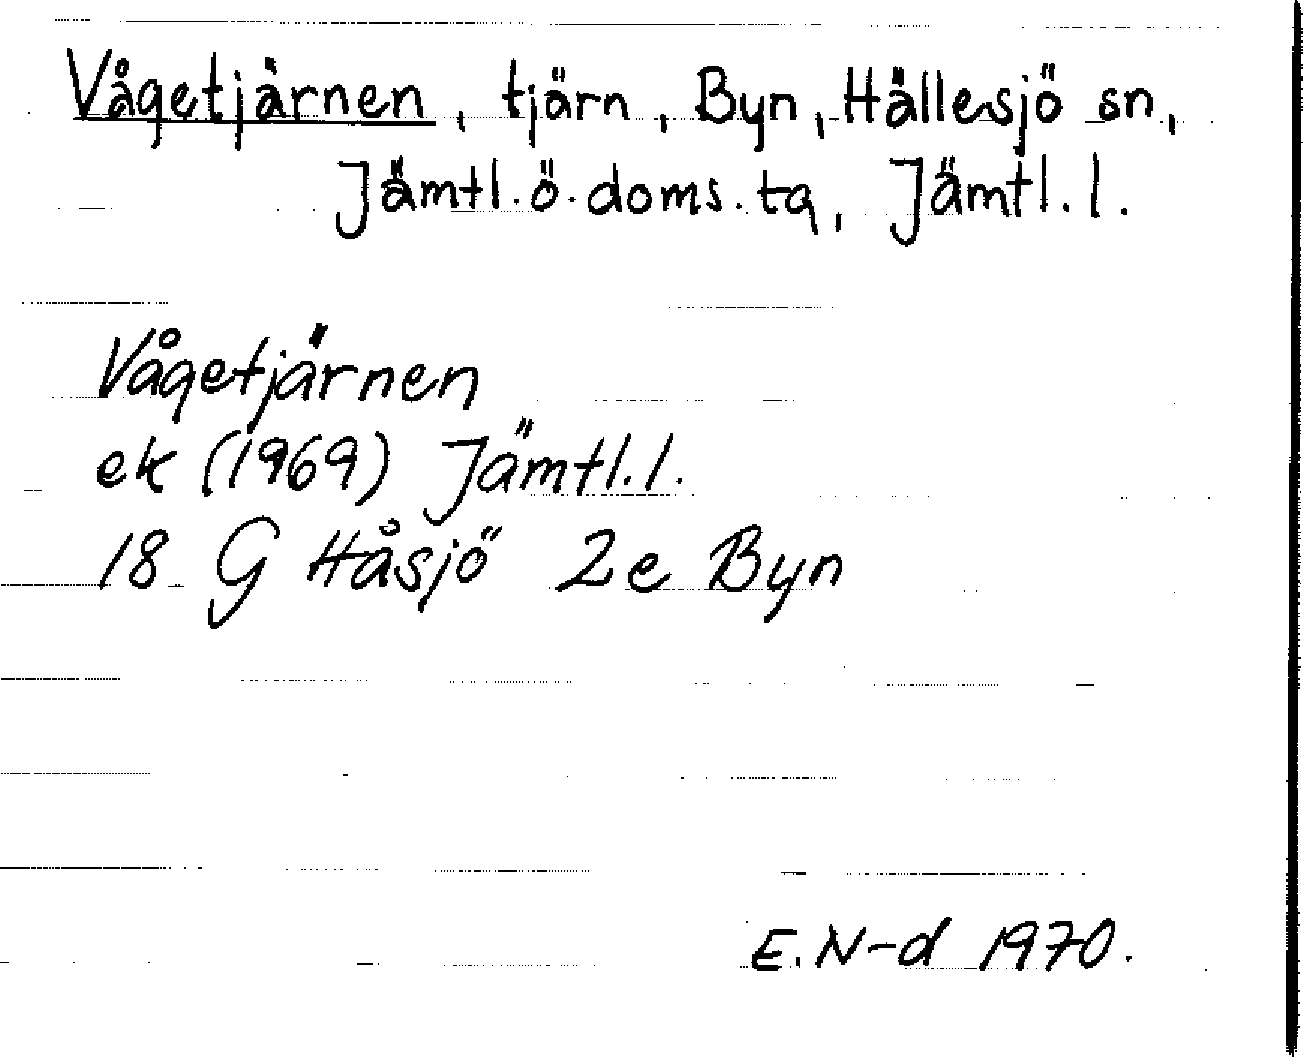 Vågetjärnen, tjärn, Byn, Hällesjö sn,
Jämtl. ö. doms. ta, Jämtl. l.
Vågetjärnen
ek (1969) Jämtl. l.
18 G Håsjö 2e Byn
E. N-d 1970.